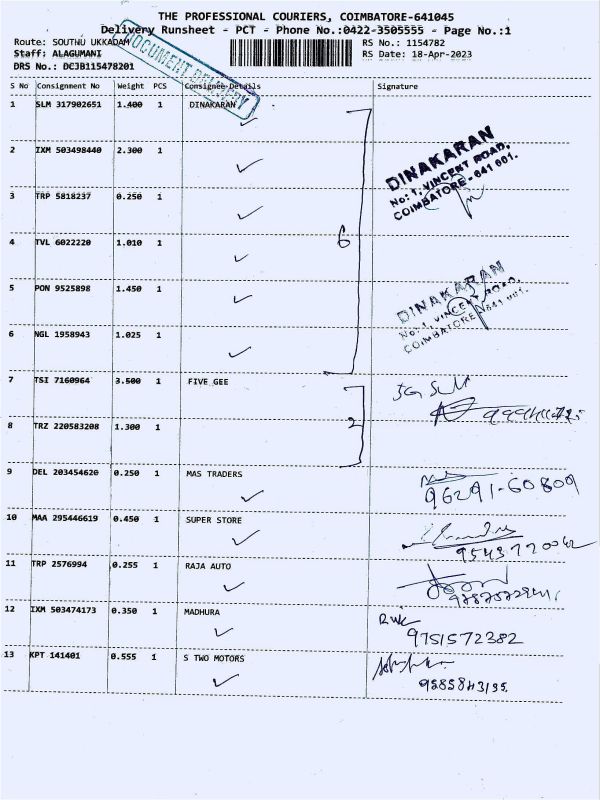 THE PROFESSIONAL COURIERS, COIMBATORE-641045
Delivery Runsheet - PCT - Phone No.:0422-3505555 - Page No.:1
Route: SOUTHU UKKADAM
RS No.: 1154782
Staff: ALAGUMANI
RS Date: 18-Apr-2023
DRS No.: DCJB115478201
DOCUMENT DELIVERY
S No Consignment No Weight PCS Consignee Details Signature
1 SLM 317902651 1.400 1 DINAKARAN
2 IXM 503498440 2.300 1
DINAKARAN
No: 1, VINCENT ROAD,
COIMBATORE - 641 001.
3 TRP 5818237 0.250 1
4 TVL 6022220 1.010 1
6
5 PON 9525898 1.450 1
DINAKARAN
No: 1, VINCENT ROAD,
COIMBATORE - 641 001.
6 NGL 1958943 1.025 1
7 TSI 7160964 3.500 1 FIVE GEE
8 TRZ 220583208 1.300 1
2
9 DEL 203454620 0.250 1 MAS TRADERS
96291-60809
10 MAA 295446619 0.450 1 SUPER STORE
11 TRP 2576994 0.255 1 RAJA AUTO
12 IXM 503474173 0.350 1 MADHURA
9751572382
13 KPT 141401 0.555 1 S TWO MOTORS
9585843195